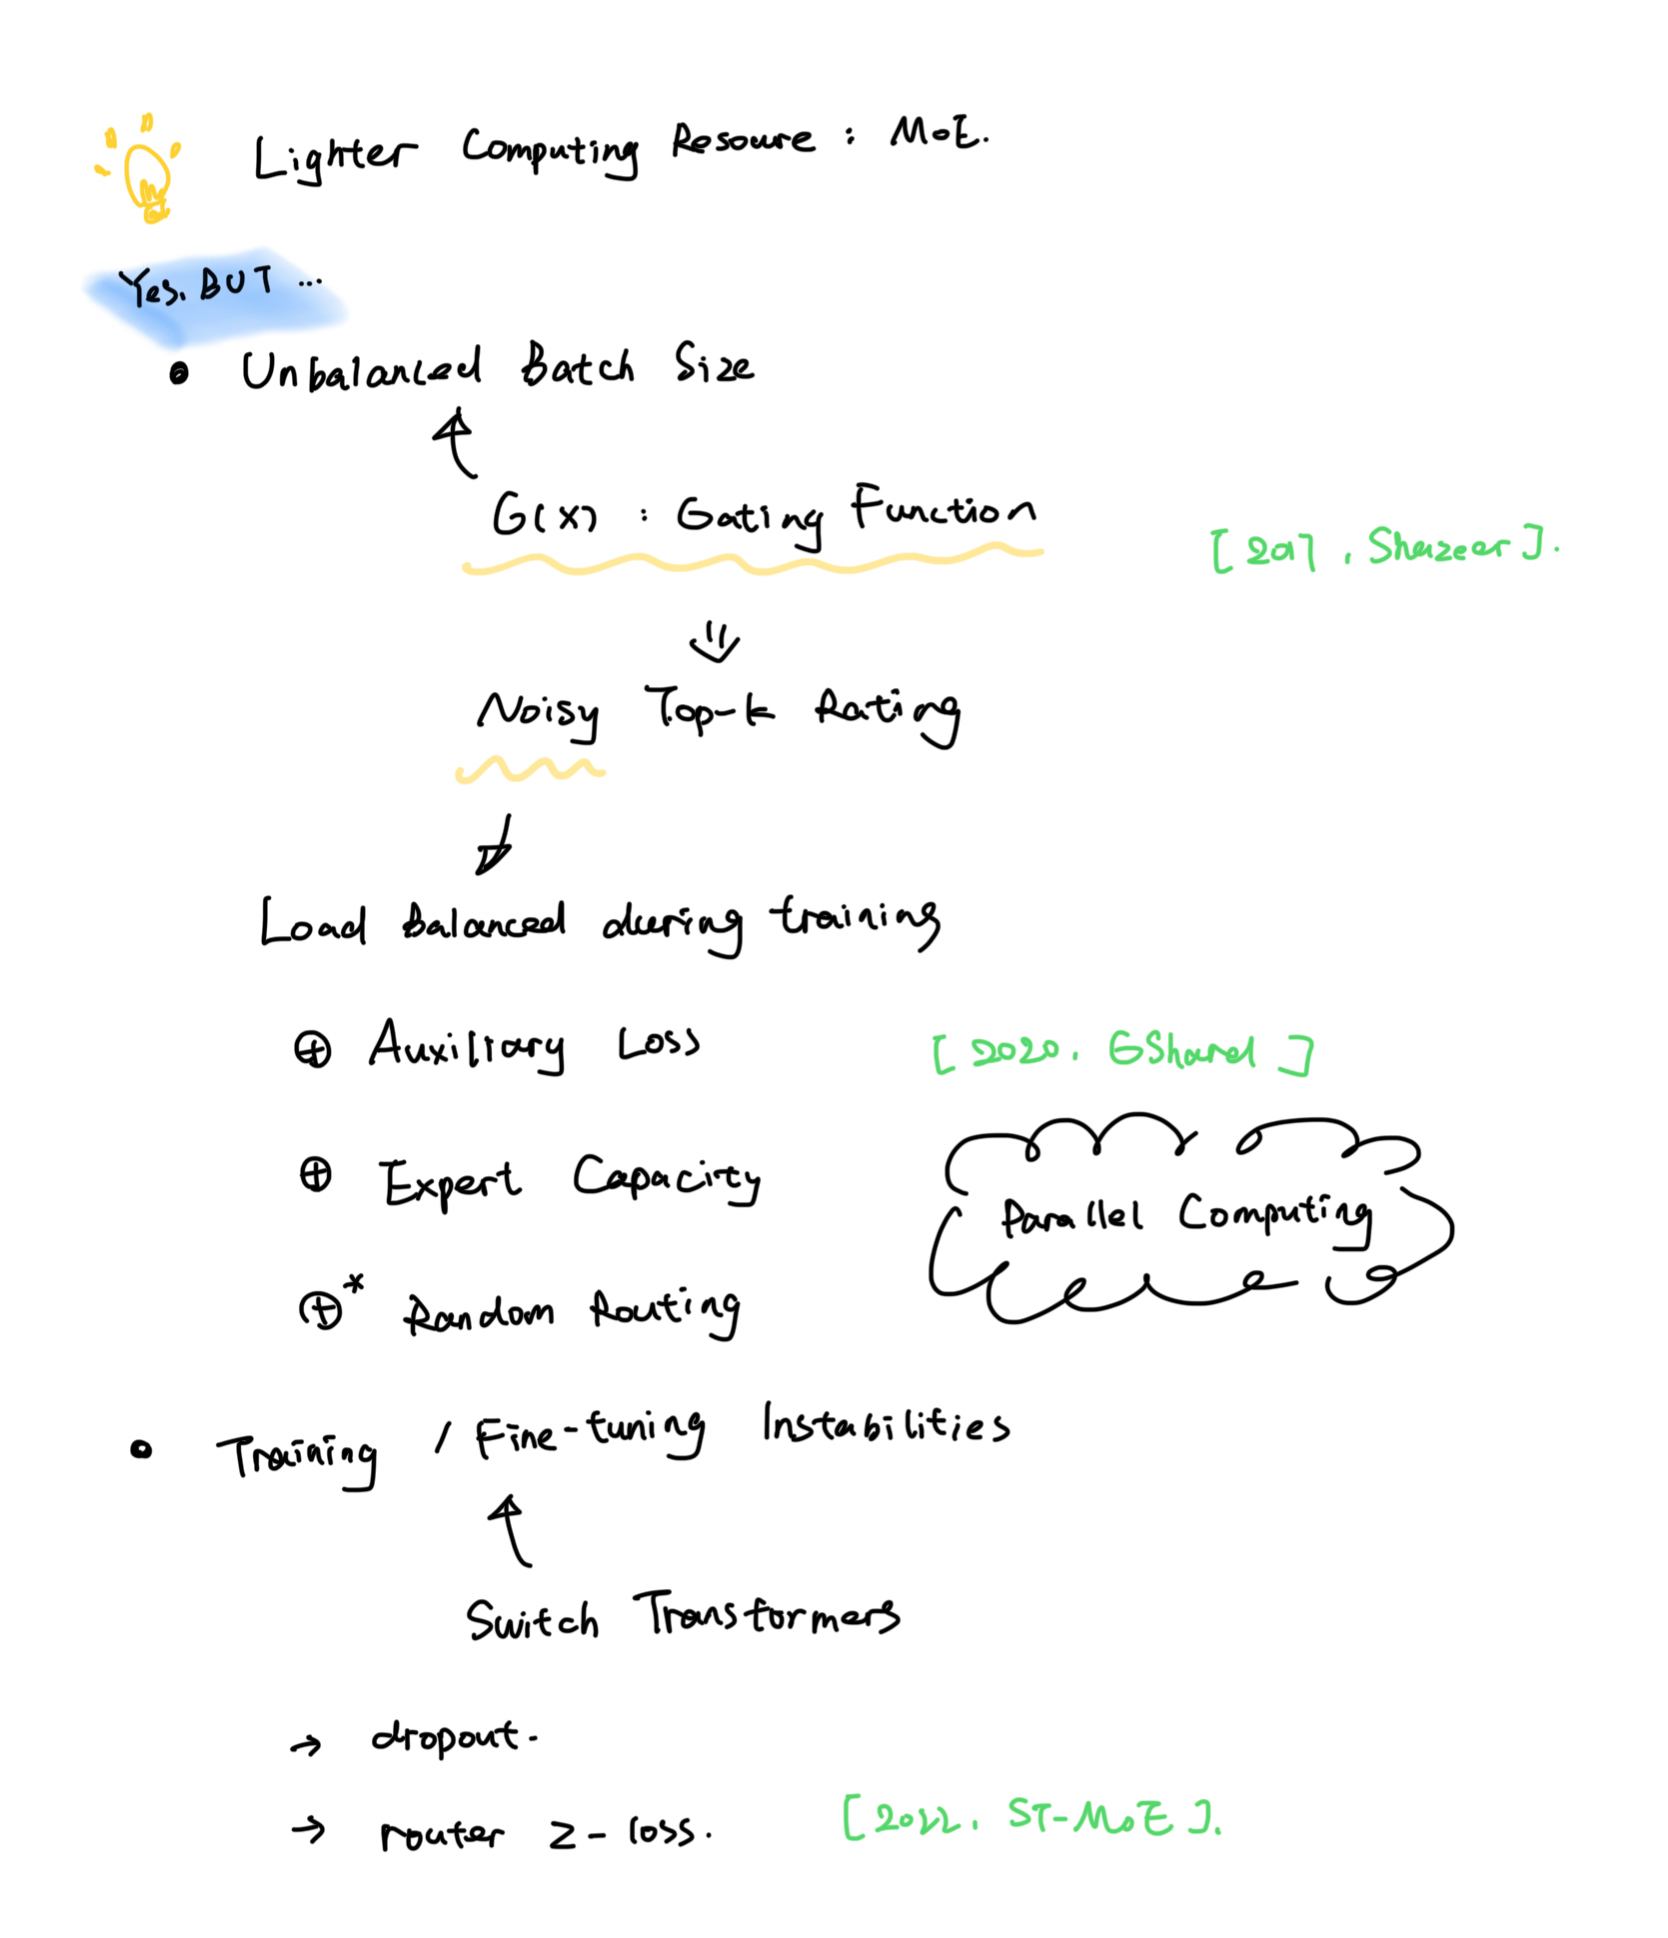 Lighter Computing Resource : MoE.
Yes. BUT ...
• Unbalanced Batch Size
G(x) : Gating Function
[2017, Shazeer].
Noisy Top-k Rating
Load Balanced during training
⊕ Auxiliary Loss
[2020. GShard]
⊕ Expert Capacity
Parallel Computing
⊕* Random Routing
• Training / Fine-tuning Instabilities
Switch Transformers
→ dropout.
→ router z-loss.
[2022. ST-MoE].